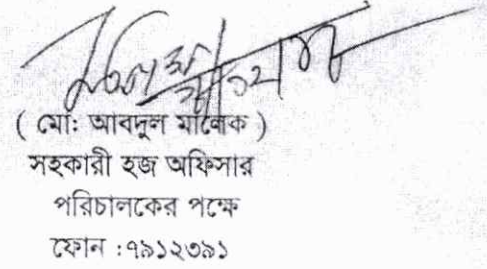 ( মোঃ আবদুল মালেক )
সহকারী হজ অফিসার
পরিচালকের পক্ষে
ফোন :৭৯১২৩৯১